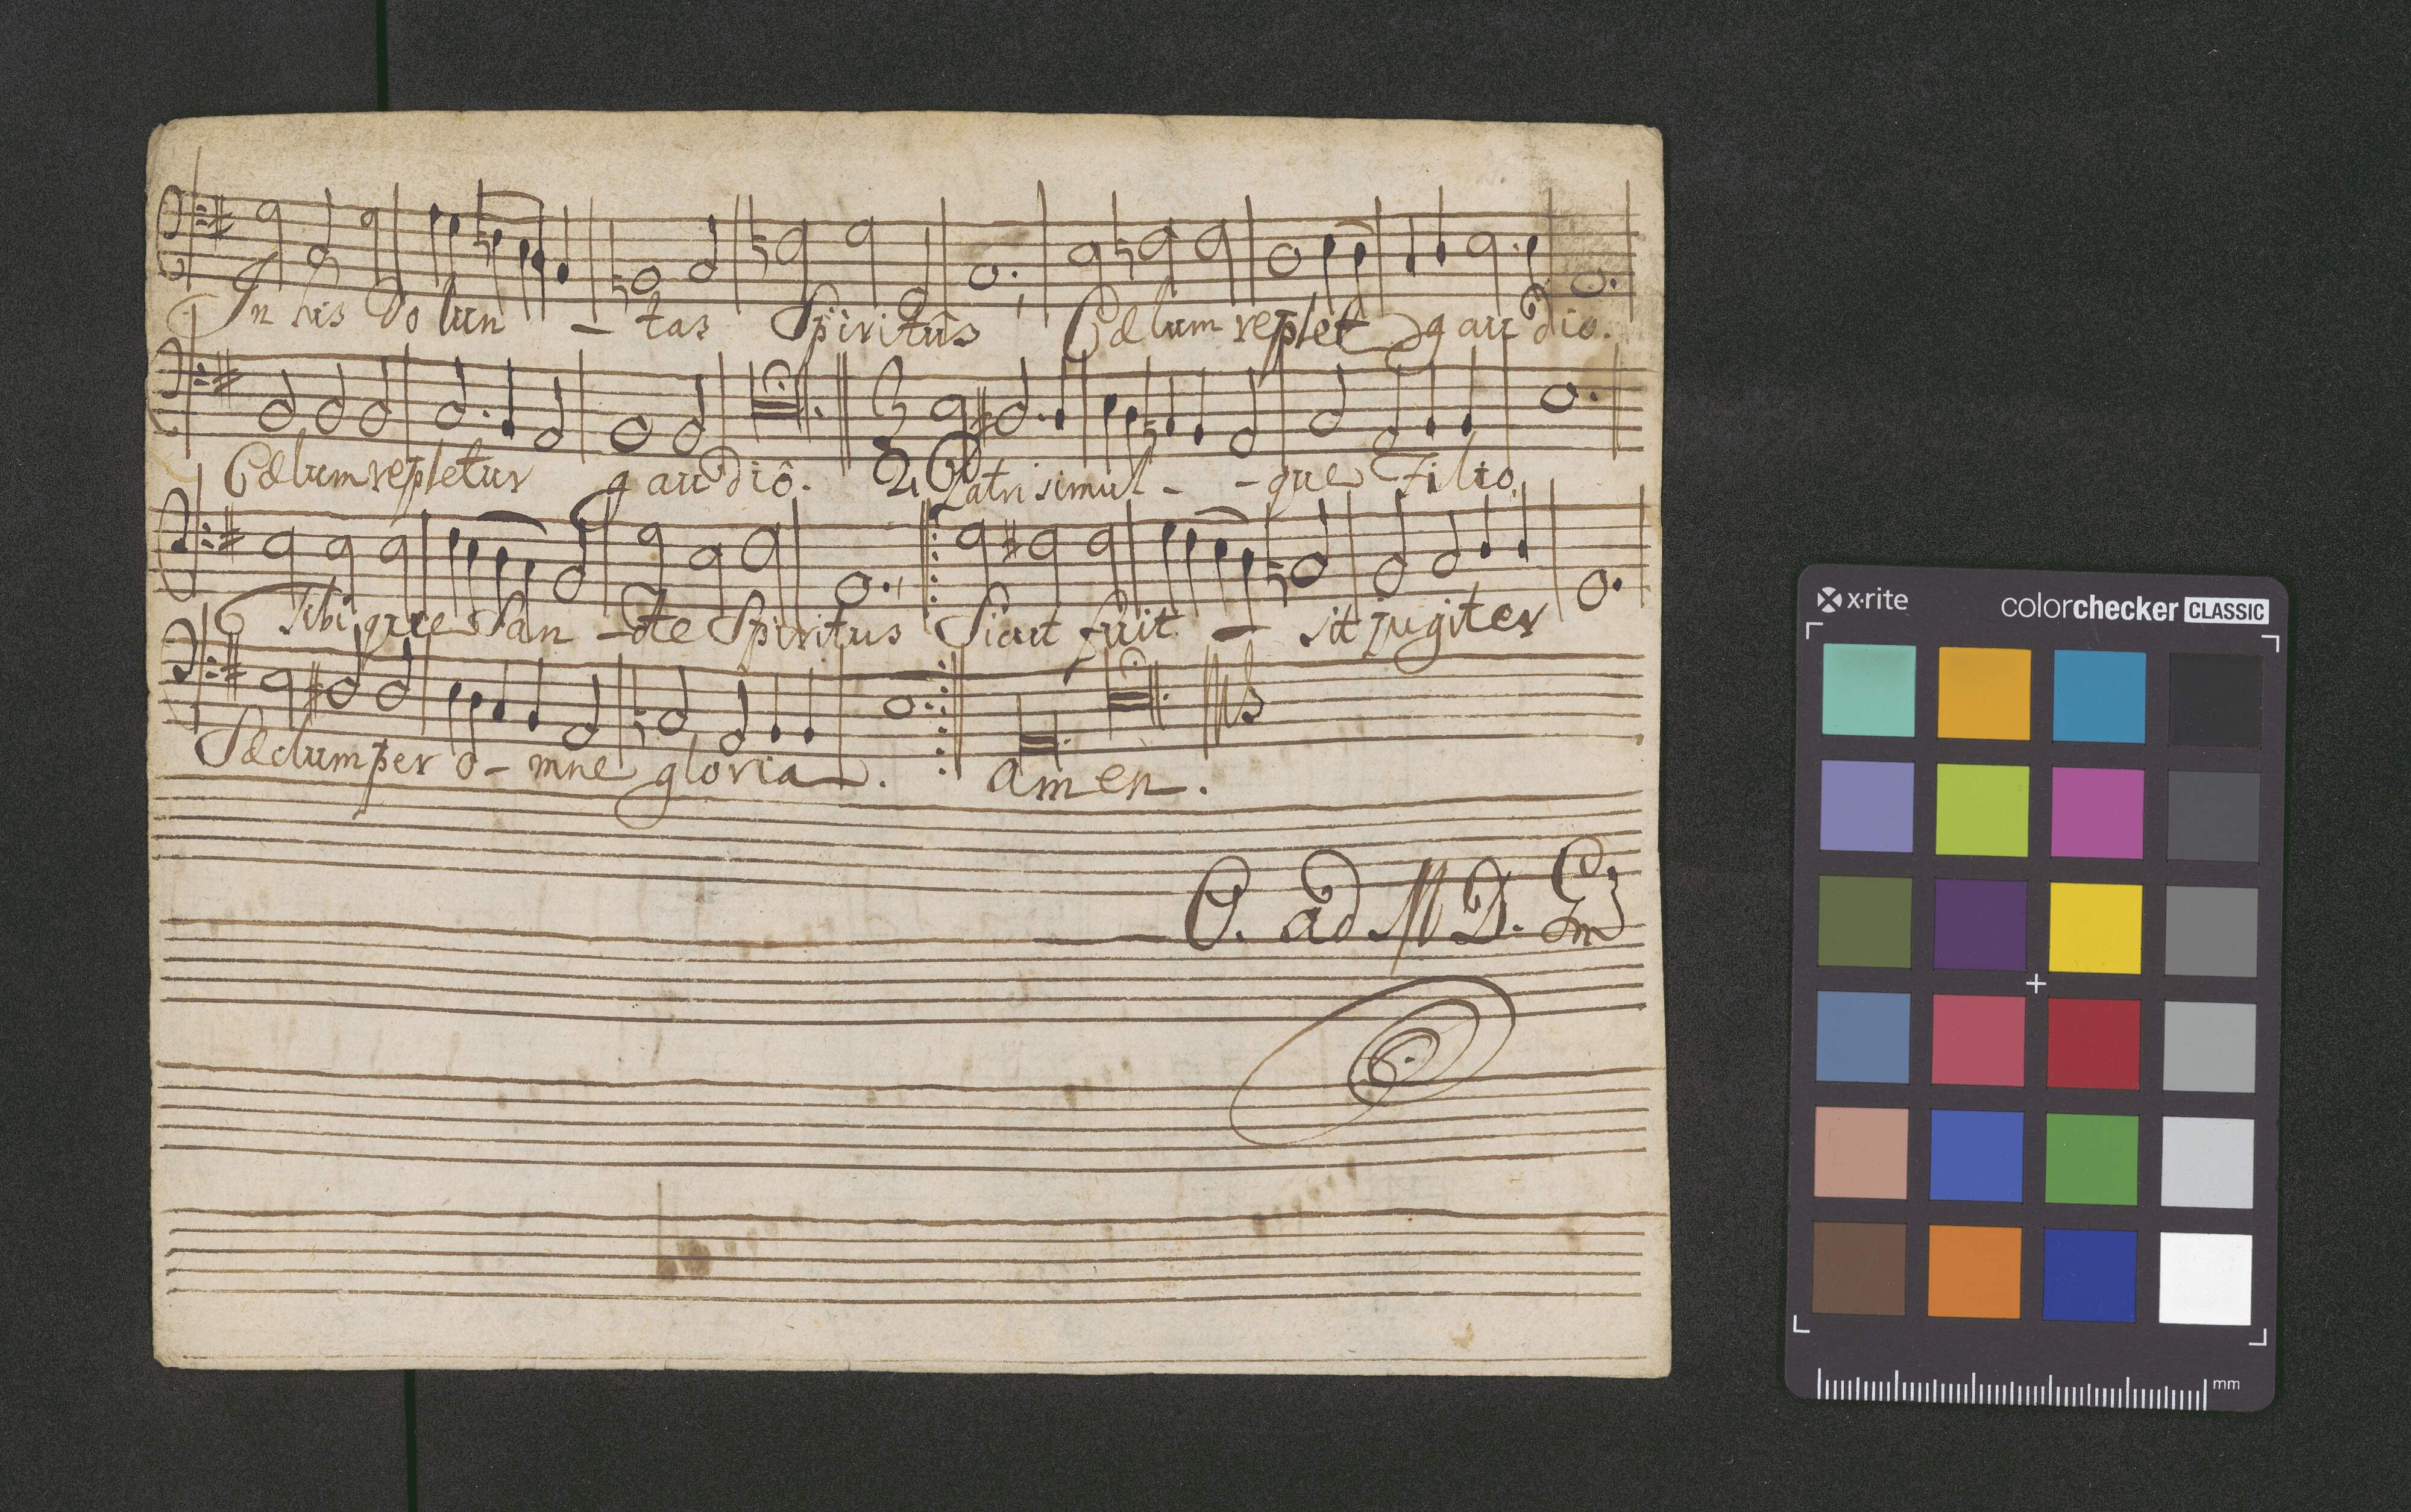 In his volun - tas Spiritus Cælum replet gaudio.
Cælum repletur gaudiô. 2. Patri simul - - que Filio,
Tibi que San - cte Spiritus Sicut fuit - sit jugiter
Sæclum per o - mne gloria. amen.
O. ad M D. G;
x·rite colorchecker CLASSIC
mm